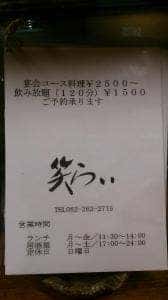 宴会コース料理¥2500～
飲み放題(120分)¥1500
ご予約承ります
笑らい
TEL052-262-2775
営業時間
ランチ 月～金/11:30-14:00
居酒屋 月～土/17:00-24:00
定休日 日曜日